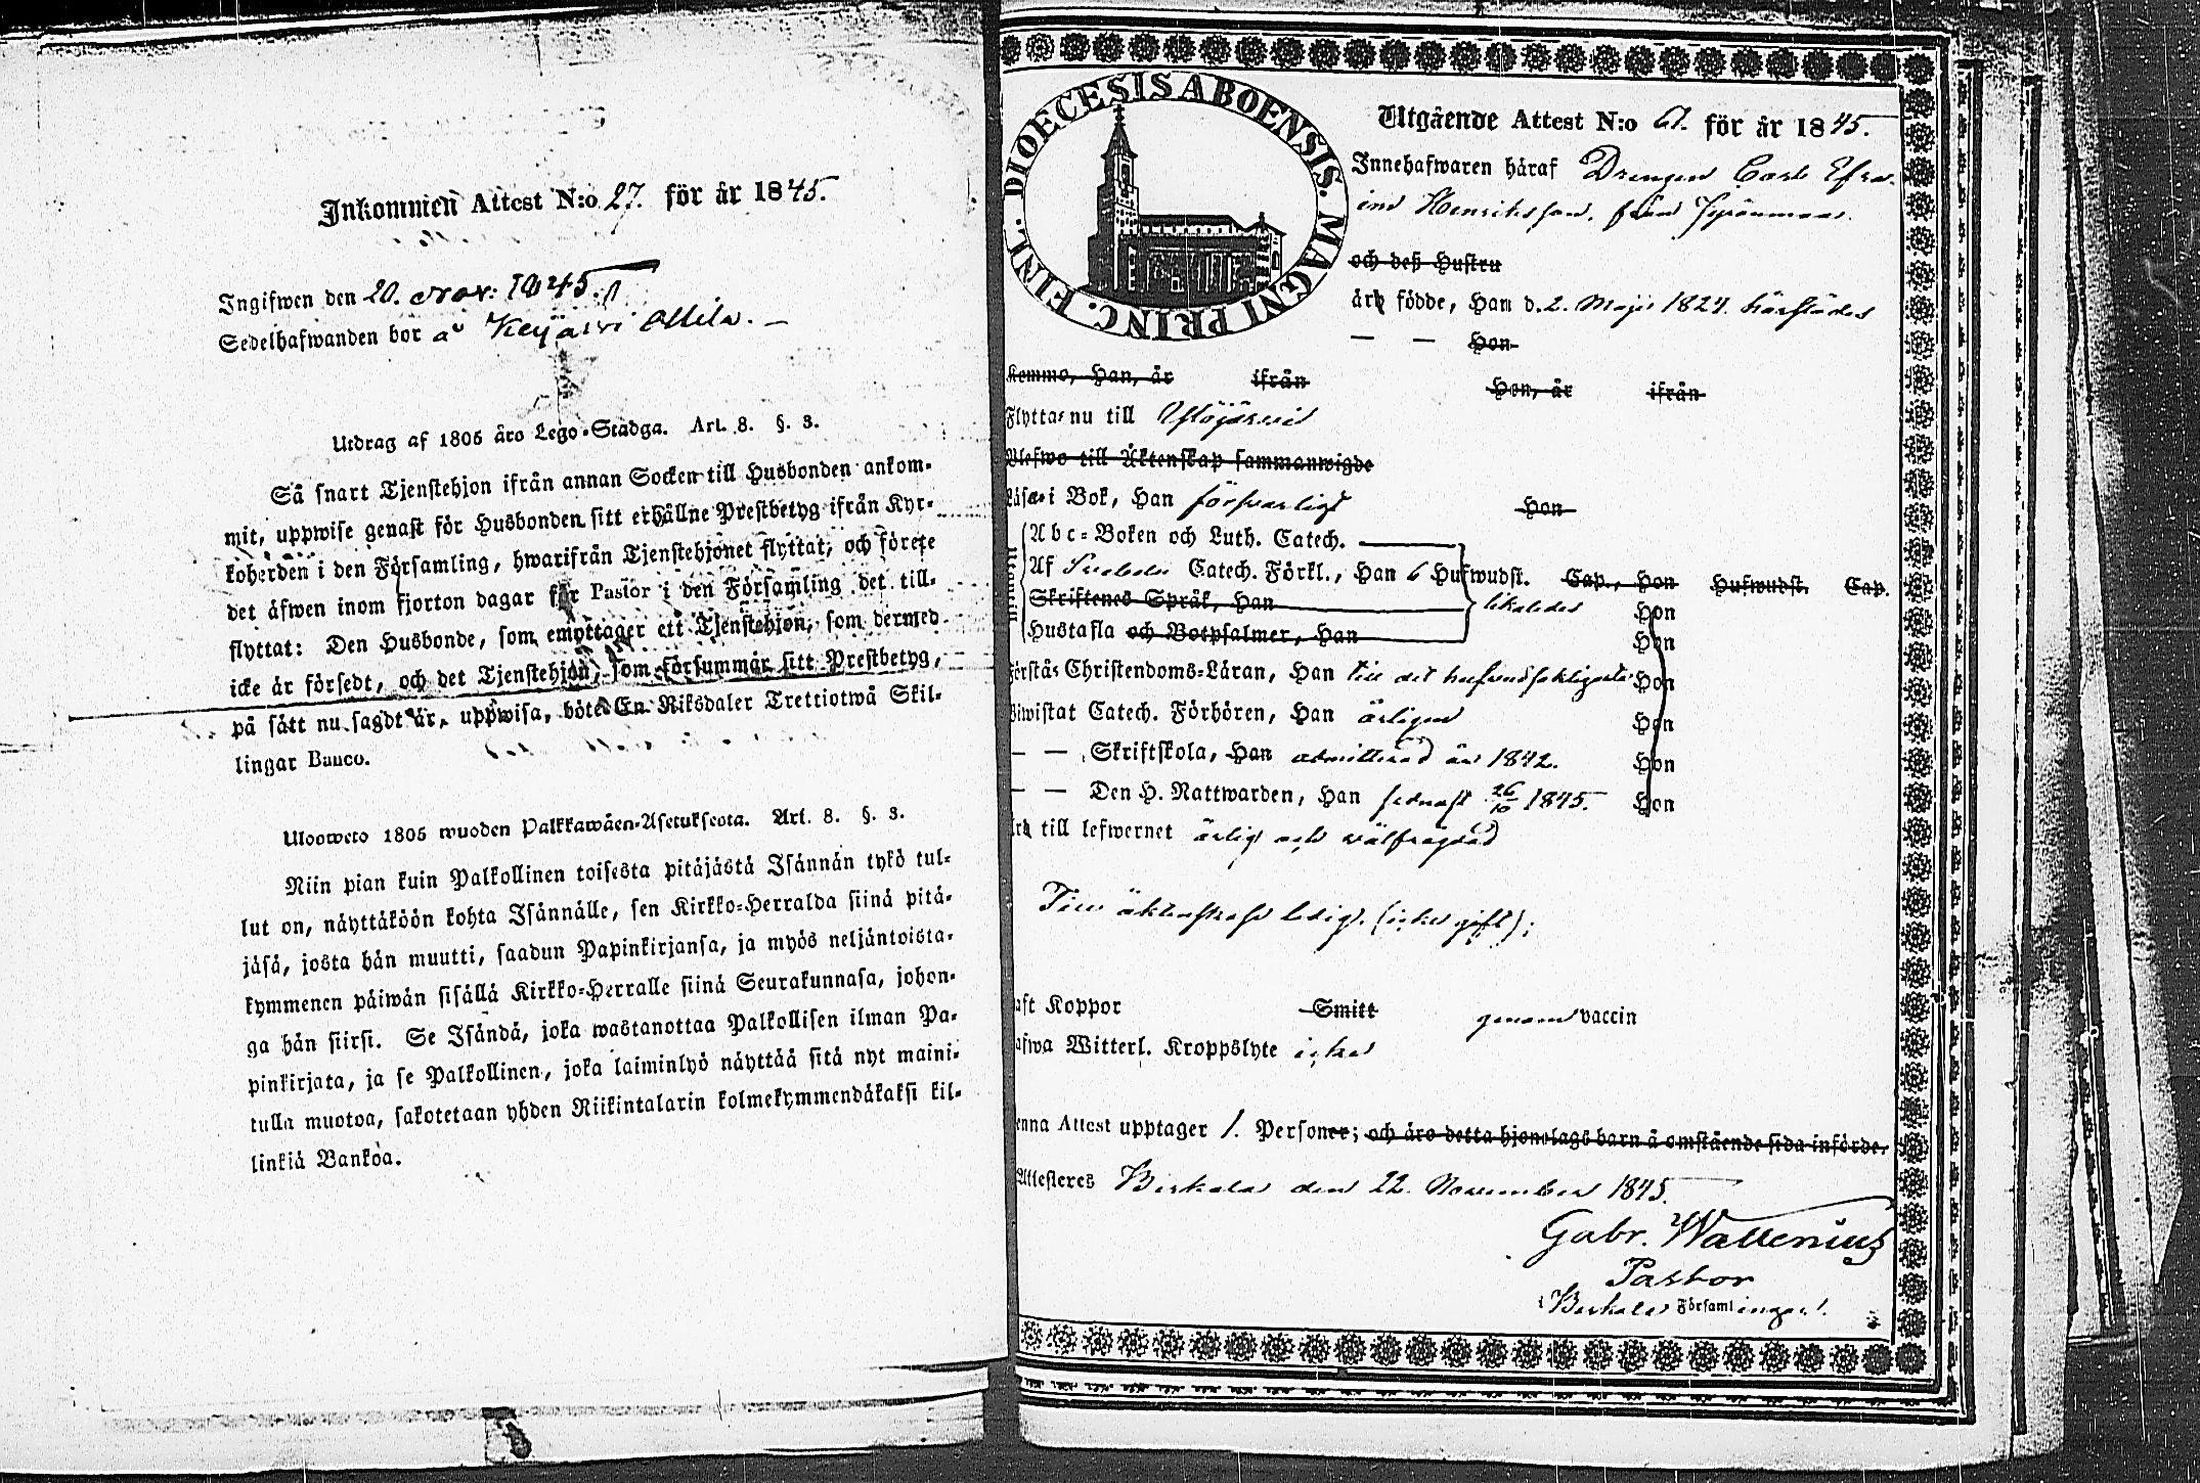 Inkommen Attest N:o 27. för år 1845.
Ingifwen den 20. Nov: 1845.
Sedelhafwanden bor å
Utdrag af 1805 års Lego-Stadga. Art. 8. §. 3.
Så snart Tjenstehjon ifrån annan Socken till Husbonden ankom-
mit, uppwise genast för Husbonden sitt erhållne Prestbetyg ifrån Kyr-
koherden i den Församling, hwarifrån Tjenstehjonet flyttat, och förete
det äfwen inom fjorton dagar för Pastor i den Församling det till-
flyttat: Den Husbonde, som emottager ett Tjenstehjon, som dermed
icke är försedt, och det Tjenstehjon, som försummar sitt Prestbetyg,
på sätt nu sagdt är, uppwisa, böte En Riksdaler Trettiotwå Skil-
lingar Banco.
Ulosweto 1805 wuoden Palkkawäen-Asetuksesta. Art. 8. §. 3.
Niin pian kuin Palkollinen toisesta pitäjästä Isännän tykö tul-
lut on, näyttäköön kohta Isännälle, sen Kirkko-Herralda siinä pitä-
jäsä, josta hän muutti, saadun Papinkirjansa, ja myös neljäntoista-
kymmenen päiwän sisällä Kirkko-Herralle siinä Seurakunnasa, johon-
ga hän siirsi. Se Isändä, joka wastanottaa Palkollisen ilman Pa-
pinkirjata, ja se Palkollinen, joka laiminlyö näyttää sitä nyt maini-
tulla muotoa, sakotetaan yhden Riikintalarin kolmekymmendäkaksi kil-
linkiä Bankoa.
DIOECESIS ABOENSIS. MAGNI PRINC. FINL.
Utgående Attest N:o för år 1845.
Innehafwaren häraf Drengen Carl Efra-
im Henriksson, från
och deß Hustru
äro födde, Han d. 2. Maji 1824. härstädes
— — Hon
Komme, Han, år ifrån Hon, år ifrån
Flyttar nu till
Blefwo till Äktenskap sammanwigde
Läser i Bok, Han förswarligt Hon
Abc-Boken och Luth. Catech.
Af Svebelii Catech. Förkl., Han 6 Hufwudst. Cap., Hon Hufwudst. Cap.
Skriftenes Språk, Han likaledes Hon
Hustafla och Botpsalmer, Han Hon
Förstår Christendoms-Läran, Han till det hufvudsakligaste Hon
Biwistat Catech. Förhören, Han årligen Hon
— — Skriftskola, Han admitterad år 1842. Hon
— — Den H. Nattwarden, Han sednast 26/10 1845. Hon
Är till lefwernet ärlig och wälfrägdad
Till äktenskap ledig. (icke gift);
Haft Koppor Smitt genom vaccin
Hafwa Witterl. Kroppslyte icke
Denna Attest upptager 1. Personer; och äro detta hjonelags barn å omstående sida införde.
Attesteres Birkala den 22. November 1845.
Gabr. Wallenius
Pastor
i Birkala Församlingar.